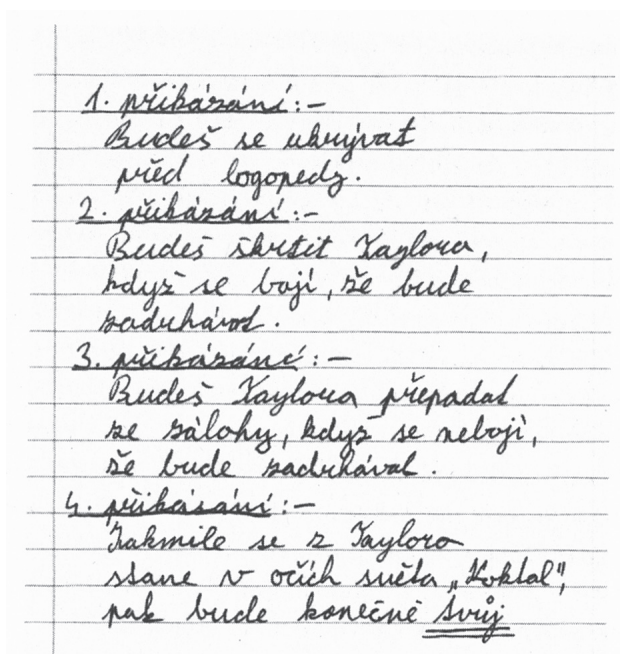 1. přikázání:-
Budeš se ukrývat
před logopedy.
2. přikázání:-
Budeš škrtit Taylora,
když se bojí, že bude
zadrhávat.
3. přikázání:-
Budeš Taylora přepadat
ze zálohy, když se nebojí,
že bude zadrhávat.
4. přikázání:-
Jakmile se z Taylora
stane v očích světa „Koktal",
pak bude konečně tvůj